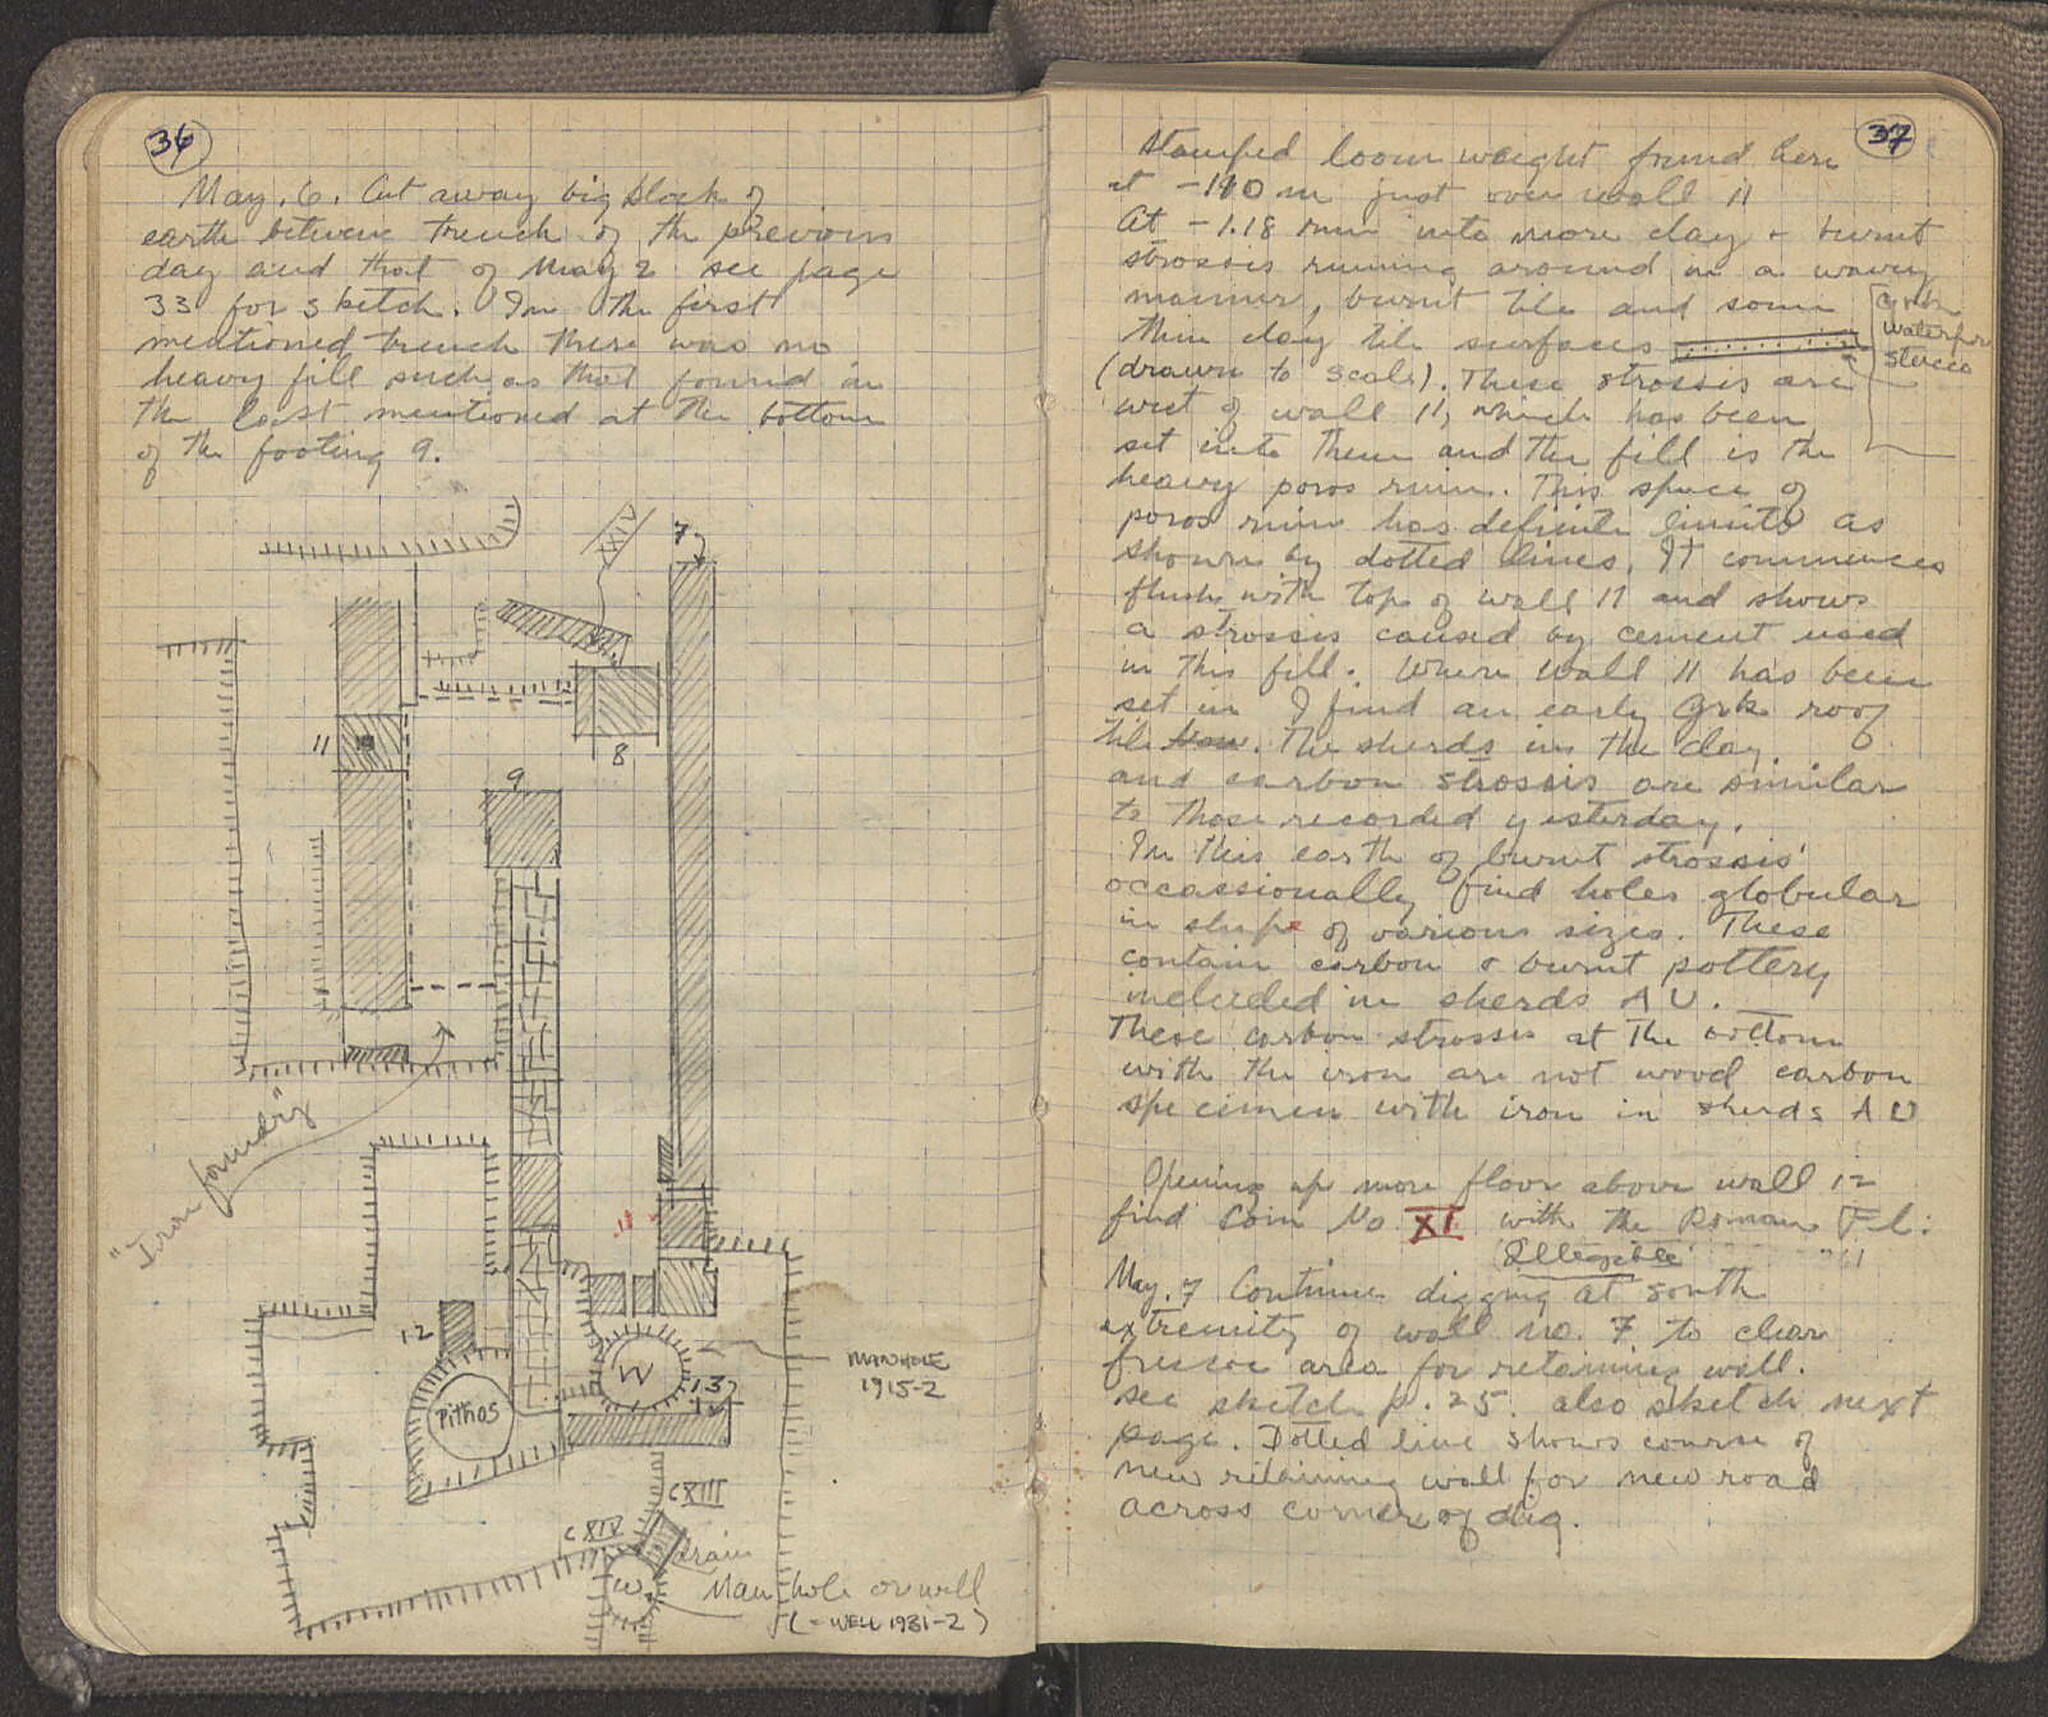 36
May. 6. Cut away big block of
earth between trench of the previous
day and that of May 2 see page
33 for sketch. In the first
mentioned trench there was no
heavy fill such as that found in
the last mentioned at the bottom
of the footing 9.
XIV
7
11
8
9
"Iron foundry"
12
Pithos
W
13
MANHOLE
1915-2
CXIII
CXIV
drain
W
Manhole or well
(= WELL 1931-2)
37
Stamped loom weight found here
at -110 m just over wall 11
At -1.18 run into more clay + burnt
strosis running around in a wavy
manner, burnt tile and some
thin clay tile surfaces
Grk
waterprf
stucco
(drawn to scale). These strosis are
west of wall 11, which has been
set into them and the fill is the
heavy poros ruin. This space of
poros ruin has definite limits as
shown by dotted lines. It commences
flush with top of wall 11 and shows
a strosis caused by cement used
in this fill. Where wall 11 has been
set in I find an early Grk roof
tile. The sherds in the clay
and carbon strosis are similar
to those recorded yesterday.
In this earth of burnt strosis
occassionally find holes globular
in shape of various sizes. These
contain carbon & burnt pottery
included in sherds A U.
These carbon strosis at the bottom
with the iron are not wood carbon
specimen with iron in sherds A U
Opening up more floor above wall 12
find Coin No XI with the Roman Fl:
Illegible " "
May. 7 Continue digging at south
extremity of wall no. 7 to clear
area for retaining wall.
see sketch p. 25. also sketch next
page. Dotted line shows course of
new retaining wall for new road
across corner of dig.